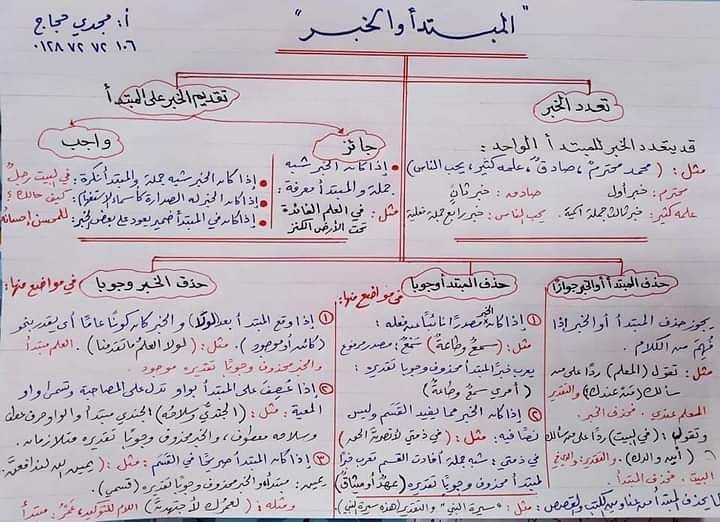 "المبتدأ والخبر"
أ: مجدي حجاج
٠١٢٨٧٢٧٢١٠٦
تعدد الخبر
قد يتعدد الخبر للمبتدأ الواحد :
مثل : ( محمد محترمٌ ، صادقٌ ، علمه كثير ، يحب الناس )
محترم : خبر أول صادق : خبر ثان
علمه كثير : خبر ثالث جملة اسمية . يحب الناس : خبر رابع جملة فعلية
تقديم الخبر على المبتدأ
جائز
إذا كان الخبر شبه
جملة والمبتدأ معرفة :
مثل : في العلم الفائدة
تحت الأرض الكنز
واجب
إذا كان الخبر شبه جملة والمبتدأ نكرة : في البيت رجلٌ
إذا كان الخبر له الصدارة كأسماء الاستفهام : كيف حالك ؟
إذا كان في المبتدأ ضمير يعود على بعض الخبر : للمحسن إحسانه
حذف المبتدأ أو الخبر جوازًا
يجوز حذف المبتدأ أو الخبر إذا
فُهِمَ من الكلام .
مثل : تقول (المعلم) ردًا على من
سألك (مَنْ عندك) والتقدير
المعلم عندي . فحذف الخبر .
وتقول : (في البيت) ردًا على من سألك
(أين والدك) . والتقدير : والدي في
البيت . فحذف المبتدأ .
يحذف المبتدأ من عناوين الكتب والقصص : مثل : "سيرة النبي" والتقدير (هذه سيرة النبي) .
حذف المبتدأ وجوبا
في مواضع منها :
١ إذا كان الخبر مصدرًا نائبًا عن فعله :
مثل : (سمعٌ وطاعةٌ) سَمْعٌ : مصدر مرفوع
يعرب خبرًا لمبتدأ محذوف وجوبًا تقديره :
( أمري سمعٌ وطاعةٌ )
٢ إذا كان الخبر مما يفيد القَسَم وليس
نصًا فيه : مثل : (في ذمتي لأنصرنَّ الحق)
في ذمتي : شبه جملة أفادت القسم تعرب خبرًا
لمبتدأ محذوف وجوبًا تقديره (عهدٌ أو ميثاقٌ)
حذف الخبر وجوبا
في مواضع منها :
١ إذا وقع المبتدأ بعد (لولا) والخبر كان كونًا عامًا أي يقدر بنحو
(كائن أو موجود) . مثل : (لولا العلمُ ما تقدمنا) . العلم مبتدأ
والخبر محذوف وجوبًا تقديره موجود
٢ إذا عُطِفَ على المبتدأ بواو تدل على المصاحبة وتسمى واو
المعية : مثل : (الجنديُّ وسلاحُه) الجندي مبتدأ والواو حرف عطف
وسلاحه معطوف ، والخبر محذوف وجوبًا تقديره متلازمان .
٣ إذا كان المبتدأ صريحًا في القَسَم : مثل : (يمين الله لندافعنَّ) .
يمين : مبتدأ والخبر محذوف وجوبًا تقديره (قسمي)
ومثله : (لعمرك لأجتهدنَّ) اللام للتوكيد ، عَمْرُ : مبتدأ